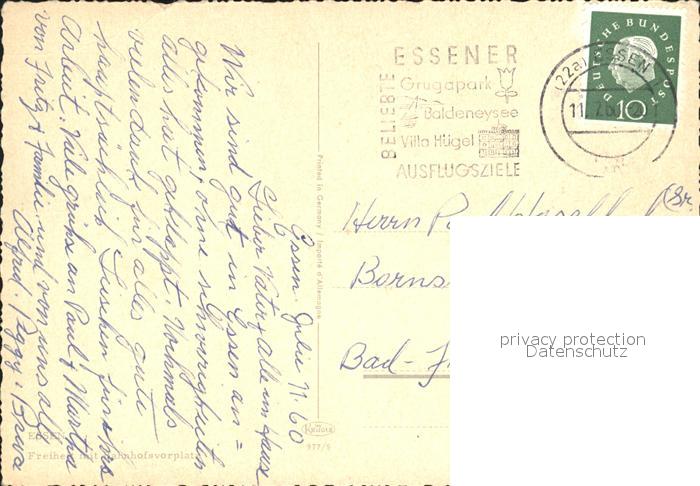 Essen. Julie 11. 60
Lieber Vater & alle im Hause
Wir sind gut in Essen an=
gekommen, ohne schwerigkeiten
alles hat geklappt. Nochmals
vielen dank für alles gute
hauptsächlich Lieschen für ihre
Arbeit. Viele grüsse an Paul & Martha
von Fritz & Familie und von uns allen
Alfred. Peggy.
ESSEN
Freiheit mit Bahnhofsvorplatz
Printed in Germany / Importé d'Allemagne
KRÜGER
977/5
BELIEBTE
ESSENER
Grugapark
Baldeneysee
Villa Hügel
AUSFLUGSZIELE
(22a) ESSEN
DEUTSCHE BUNDESPOST
10
Herrn
(Sr.
Borns
Bad-
privacy protection
Datenschutz